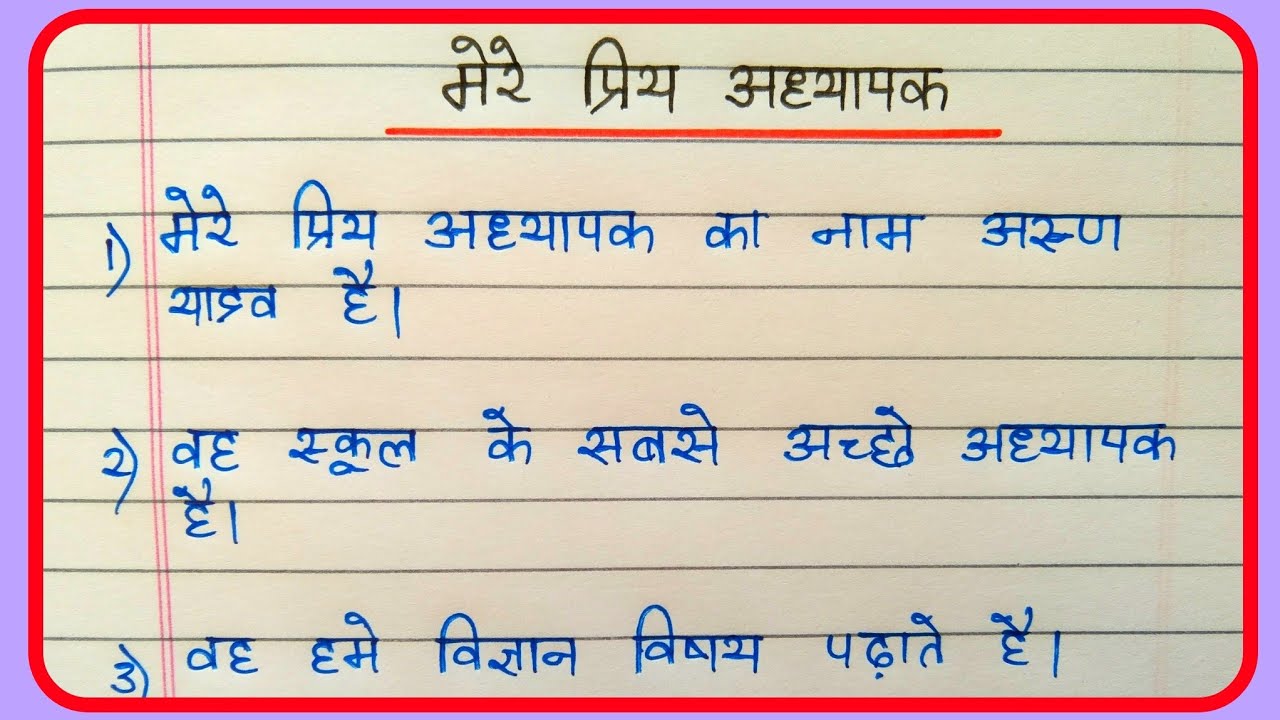 मेरे प्रिय अध्यापक
1) मेरे प्रिय अध्यापक का नाम अरुण
यादव है।
2) वह स्कूल के सबसे अच्छे अध्यापक
है।
3) वह हमे विज्ञान विषय पढ़ाते है।